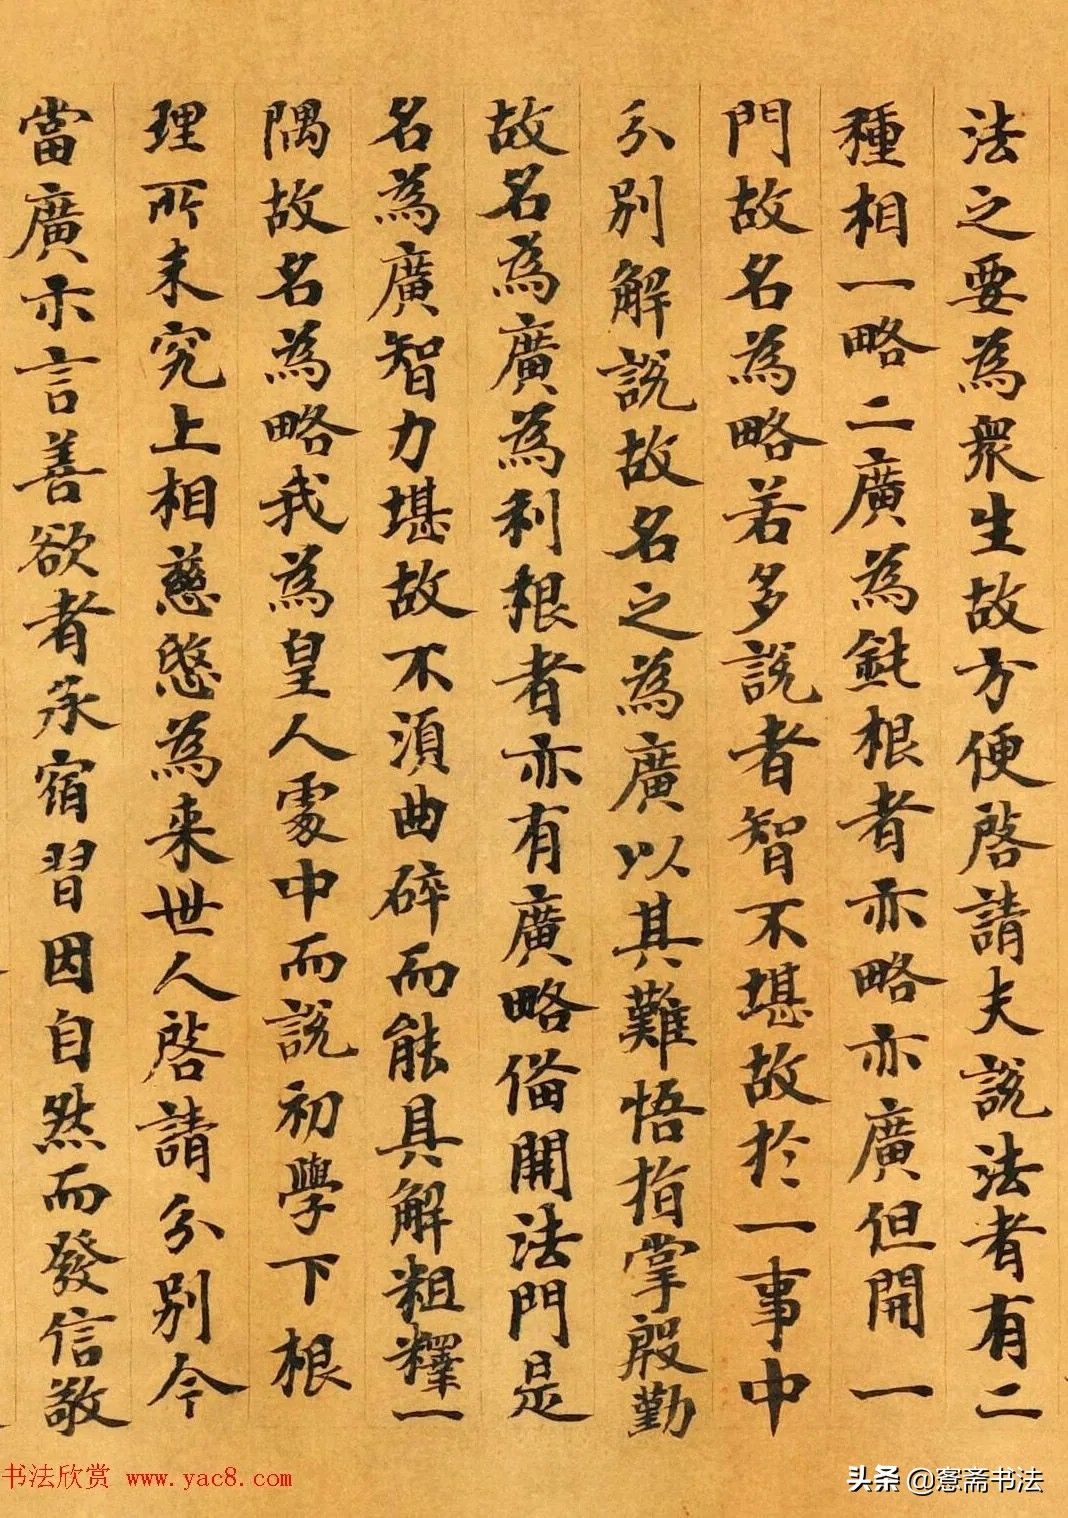 法之要為衆生故方便啓請夫說法者有二
種相一略二廣為鈍根者亦略亦廣但開一
門故名為略若多說者智不堪故於一事中
分別解說故名之為廣以其難悟指掌殷勤
故名為廣為利根者亦有廣略俻開法門是
名為廣智力堪故不須曲碎而能具解粗釋一
隅故名為略我為皇人處中而說初學下根
理所未究上相慈愍為来世人啓請分別今
當廣示言善欲者承宿習因自然而發信敬
书法欣赏 www.yac8.com
头条 @愙斋书法